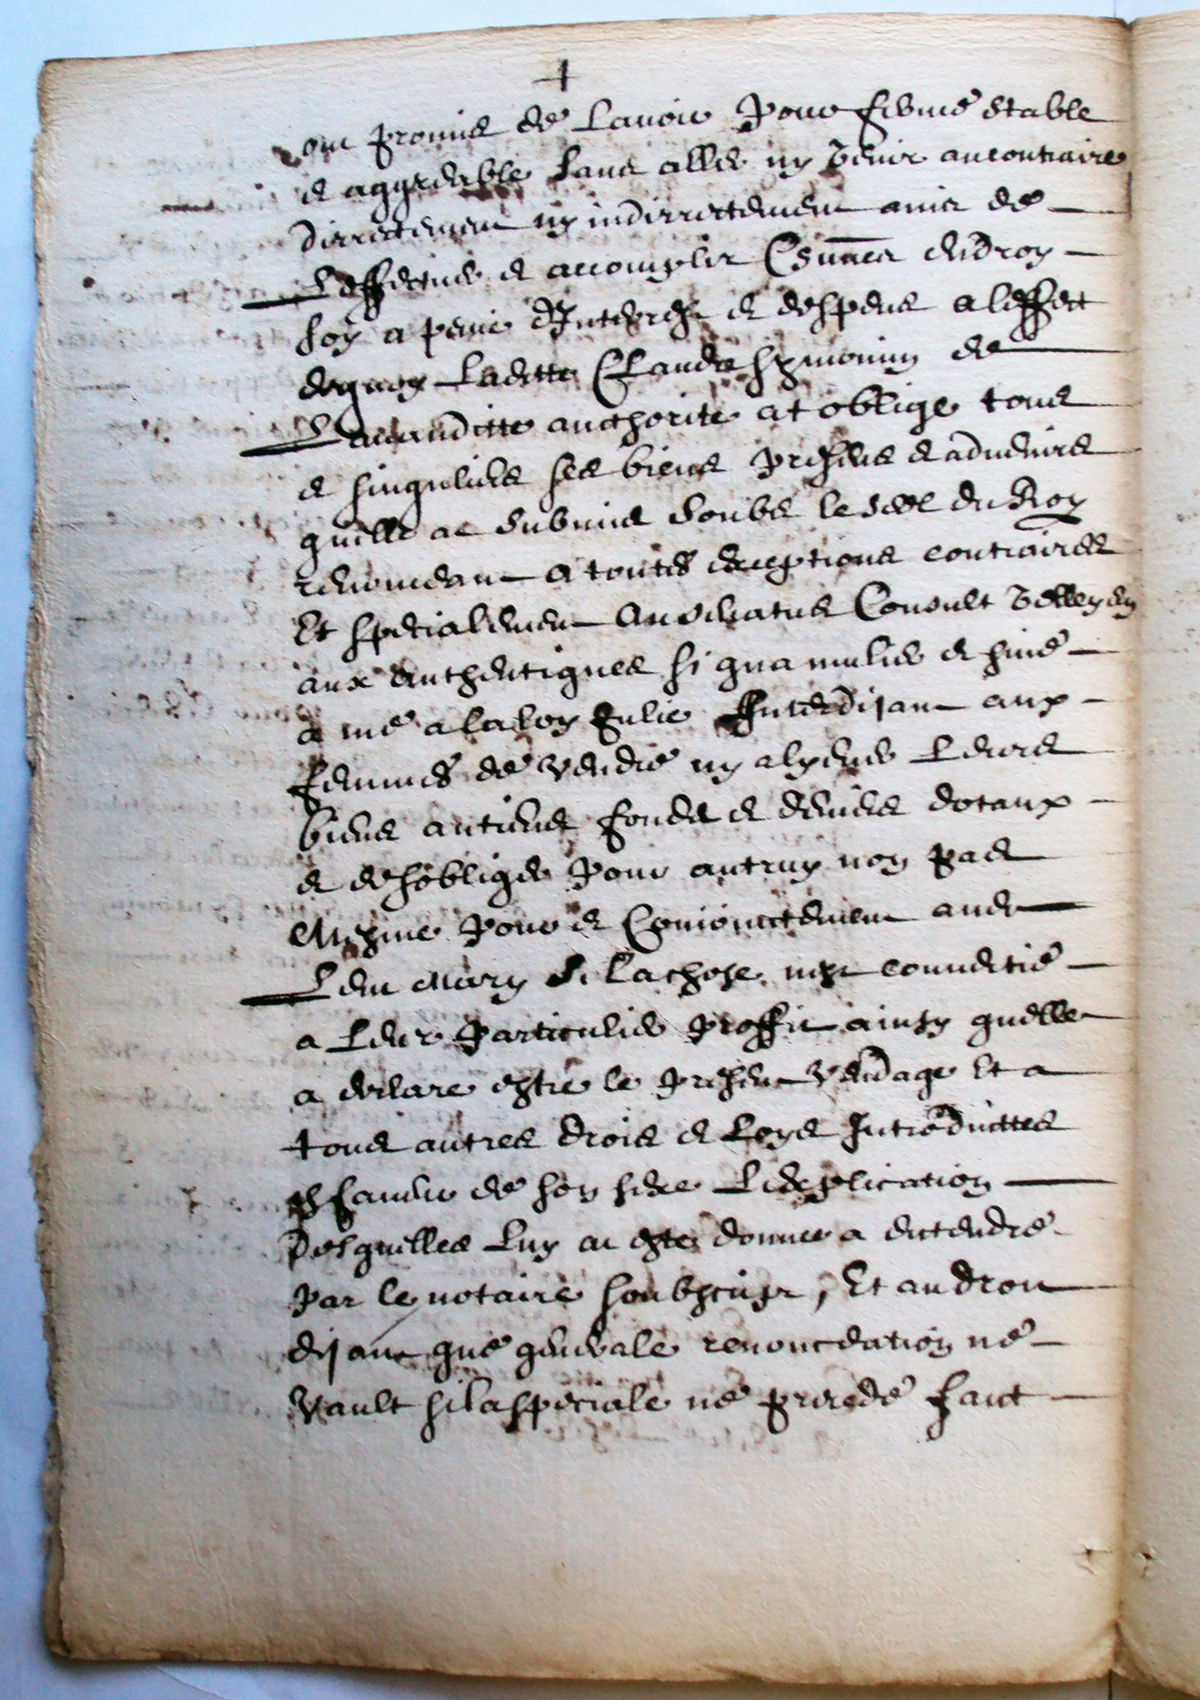 ont promis de Lavoir pour ferme stable
et aggreable sans aller ny venir au contraire
directement ny indirrectement ains de
Leffectuer et accomplir endroy
soy a peine dInterestz et despens a leffect
dequoy Ladette Claude Symonin de
Lavanditte aucthorite at oblige tous
et singuliers ses biens presens et advenirs
quelle at submis soubs le seel du Roy
renonceant a toutes exceptions contraires
Et specialement Au senatus Consult velleyen
aux authentiques si qua mulier et sive
a me a la loy Julie Interdisant aux
femmes de vendre ny aliener Leurs
biens antiens fonds et deniers dotaux
et de sobliger pour autruy non pas
Mesme pour et Conjoinctement avec
Leur Mary si la chose nest convertie
a Leur particulier proffit ainsy quelle
a declare estre le present vendage Et a
tous autres drois et Loys Introductes
en faveur de son sexe Lexplication
Desquelles Luy at este donnee a entendre
par le notaire soubscript, Et au droit
disant que generale renonceation ne
vault si la speciale ne precede faict